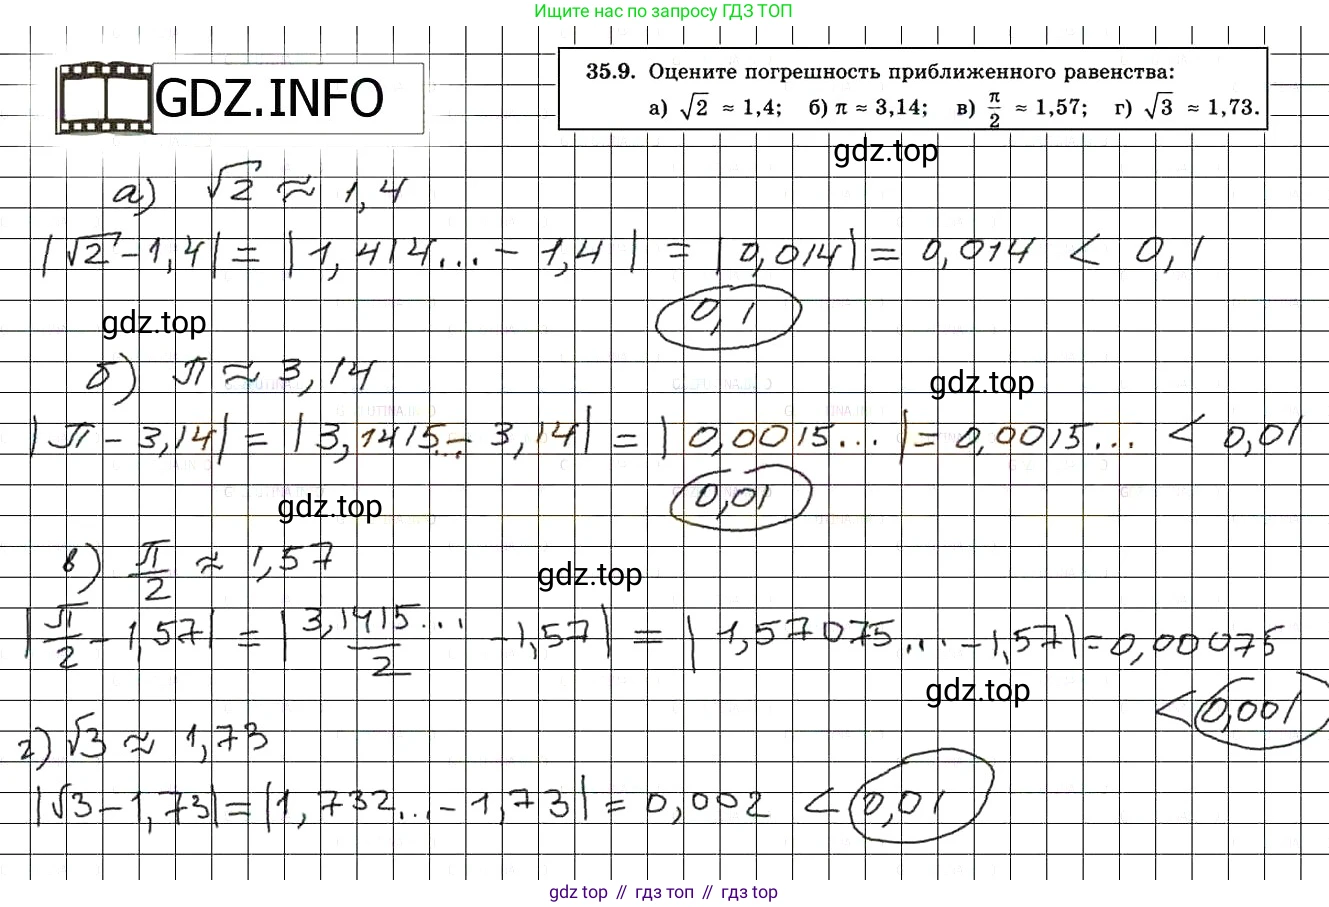 Ищите нас по запросу ГДЗ ТОП
GDZ.INFO
35.9. Оцените погрешность приближенного равенства:
а) √2 ≈ 1,4; б) π ≈ 3,14; в) π/2 ≈ 1,57; г) √3 ≈ 1,73.
gdz.top
а) √2 ≈ 1,4
|√2 - 1,4| = |1,414... - 1,4| = |0,014| = 0,014 < 0,1
0,1
gdz.top
б) π ≈ 3,14
gdz.top
|π - 3,14| = |3,1415... - 3,14| = |0,0015...| = 0,0015... < 0,01
0,01
gdz.top
в) π/2 ≈ 1,57
gdz.top
|π/2 - 1,57| = |3,1415.../2 - 1,57| = |1,57075... - 1,57| = 0,00075
gdz.top
< 0,001
г) √3 ≈ 1,73
|√3 - 1,73| = |1,732... - 1,73| = 0,002 < 0,01
gdz top // гдз топ // гдз top